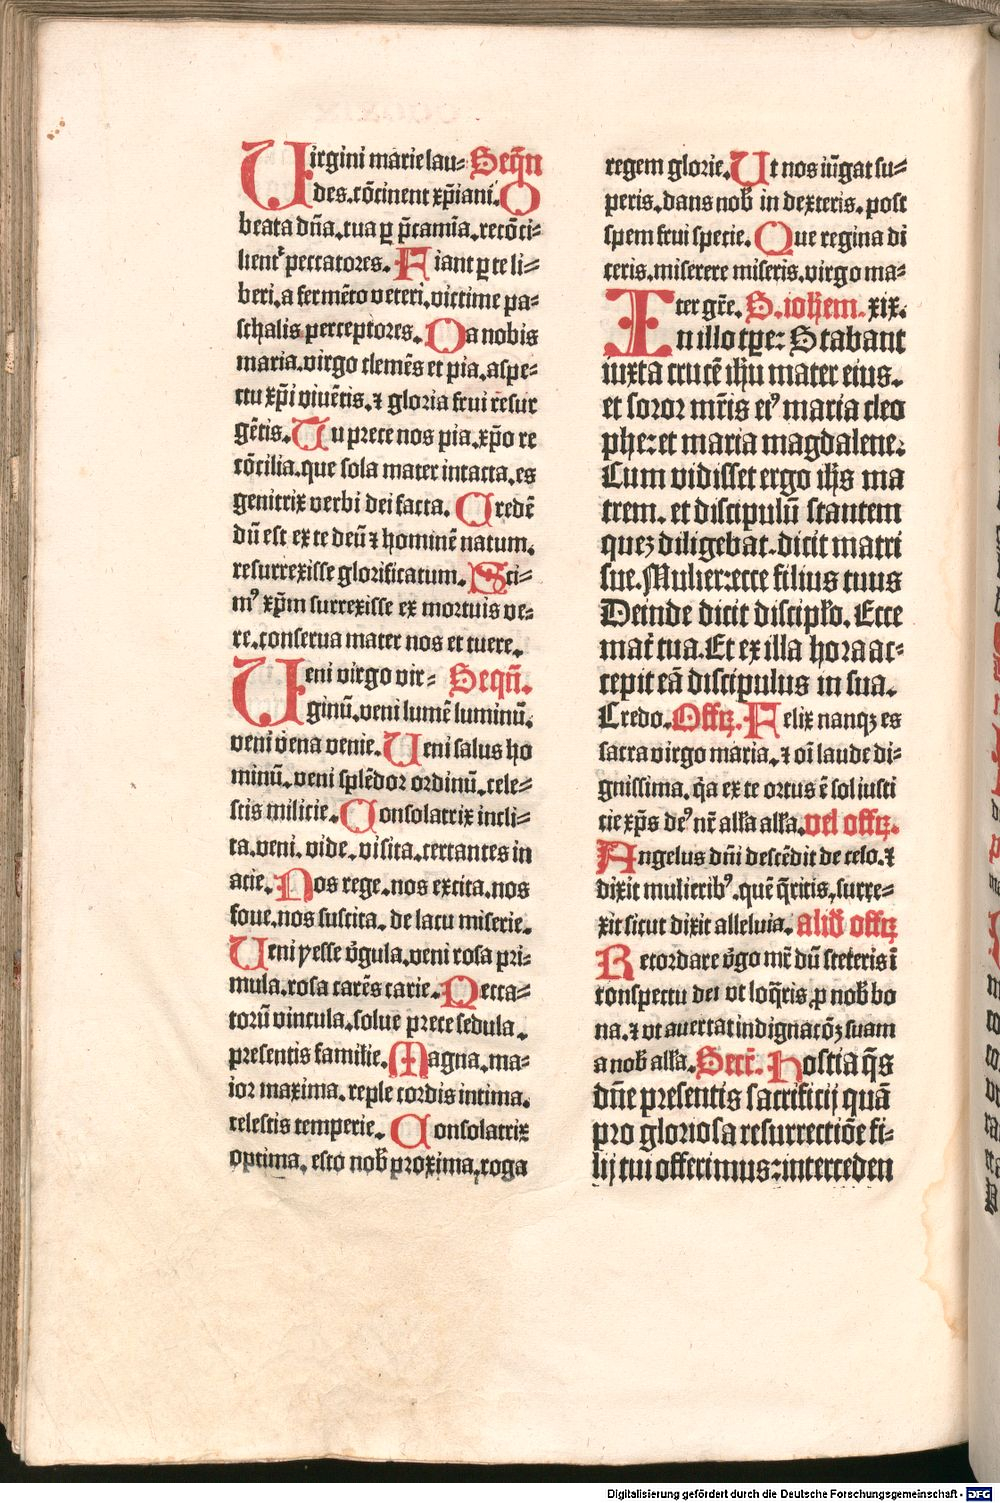 Uirgini marie lau= Seqn̄
des. cōcinent xp̄iani. O
beata dn̄a. tua ꝑ p̄camīa. recōci-
lient᷑ peccatores. Fiant ꝑ te li=
beri. a fermēto veteri. victime pa=
schalis perceptores. Da nobis
maria. virgo clemēs et pia. aspe=
ctu xp̄i viuētis. ⁊ gloria frui resur
gētis. Tu prece nos pia. xp̄o re
cōcilia. que sola mater intacta. es
genitrix verbi dei facta. Credē
dū est ex te deū ⁊ hominē natum.
resurrexisse glorificatum. Sci-
mꝰ xp̄m surrexisse ex mortuis ve=
re. conserua mater nos et tuere.
Ueni virgo vir= Seqn̄.
ginū. veni lumē luminū.
veni v̄ena venie. Ueni salus ho
minū. veni splēdor ordinū. cele=
stis milicie. Consolatrix incli-
ta. veni. vide. visita. certantes in
acie. Nos rege. nos excita. nos
foue. nos suscita. de lacu miserie.
Ueni yesse v̄gula. veni rosa pri-
mula. rosa carēs carie. Pecca=
torū vincula. solue prece sedula.
presentis familie. Magna. ma=
ior maxima. reple cordis intima.
celestis temperie. Consolatrix
optima. esto nob̄ proxima. roga
regem glorie. Ut nos iūgat su=
peris. dans nob̄ in dexteris. post
spem frui specie. Que regina di
ceris. miserere miseris. virgo ma=
ter gr̄e. S. ioh̄em. xix.
In illo tp̄e: Stabant
iuxta crucē ih̄u mater eius.
et soror mr̄is eiꝰ maria cleo
phe: et maria magdalene.
Cum vidisset ergo ih̄s ma
trem. et discipulū stantem
quez diligebat. dicit matri
sue. Mulier: ecce filius tuus
Deinde dicit discip̄lo. Ecce
mat̄ tua. Et ex illa hora ac=
cepit eā discipulus in sua.
Credo. Offꝫ. Felix nanqꝫ es
sacra virgo maria. ⁊ oī laude di-
gnissima. q̄a ex te ortus ē sol iusti
cie xp̄s deꝰ nr̄ alla alla. vel offꝫ.
Angelus dn̄i descēdit de celo. ⁊
dixit mulieribꝰ. quē q̄ritis. surre=
xit sicut dixit alleluia. aliḋ offꝫ
Recordare v̄go mr̄ dū steteris ī
conspectu dei vt loq̄ris. ꝓ nob̄ bo
na. ⁊ vt auertat indignacōꝫ suam
a nob̄ alla. Secr̄. Hostia q̄s
dn̄e presentis sacrificij quā
pro gloriosa resurrectiōe fi-
lij tui offerimus: interceden
Digitalisierung gefördert durch die Deutsche Forschungsgemeinschaft - DFG